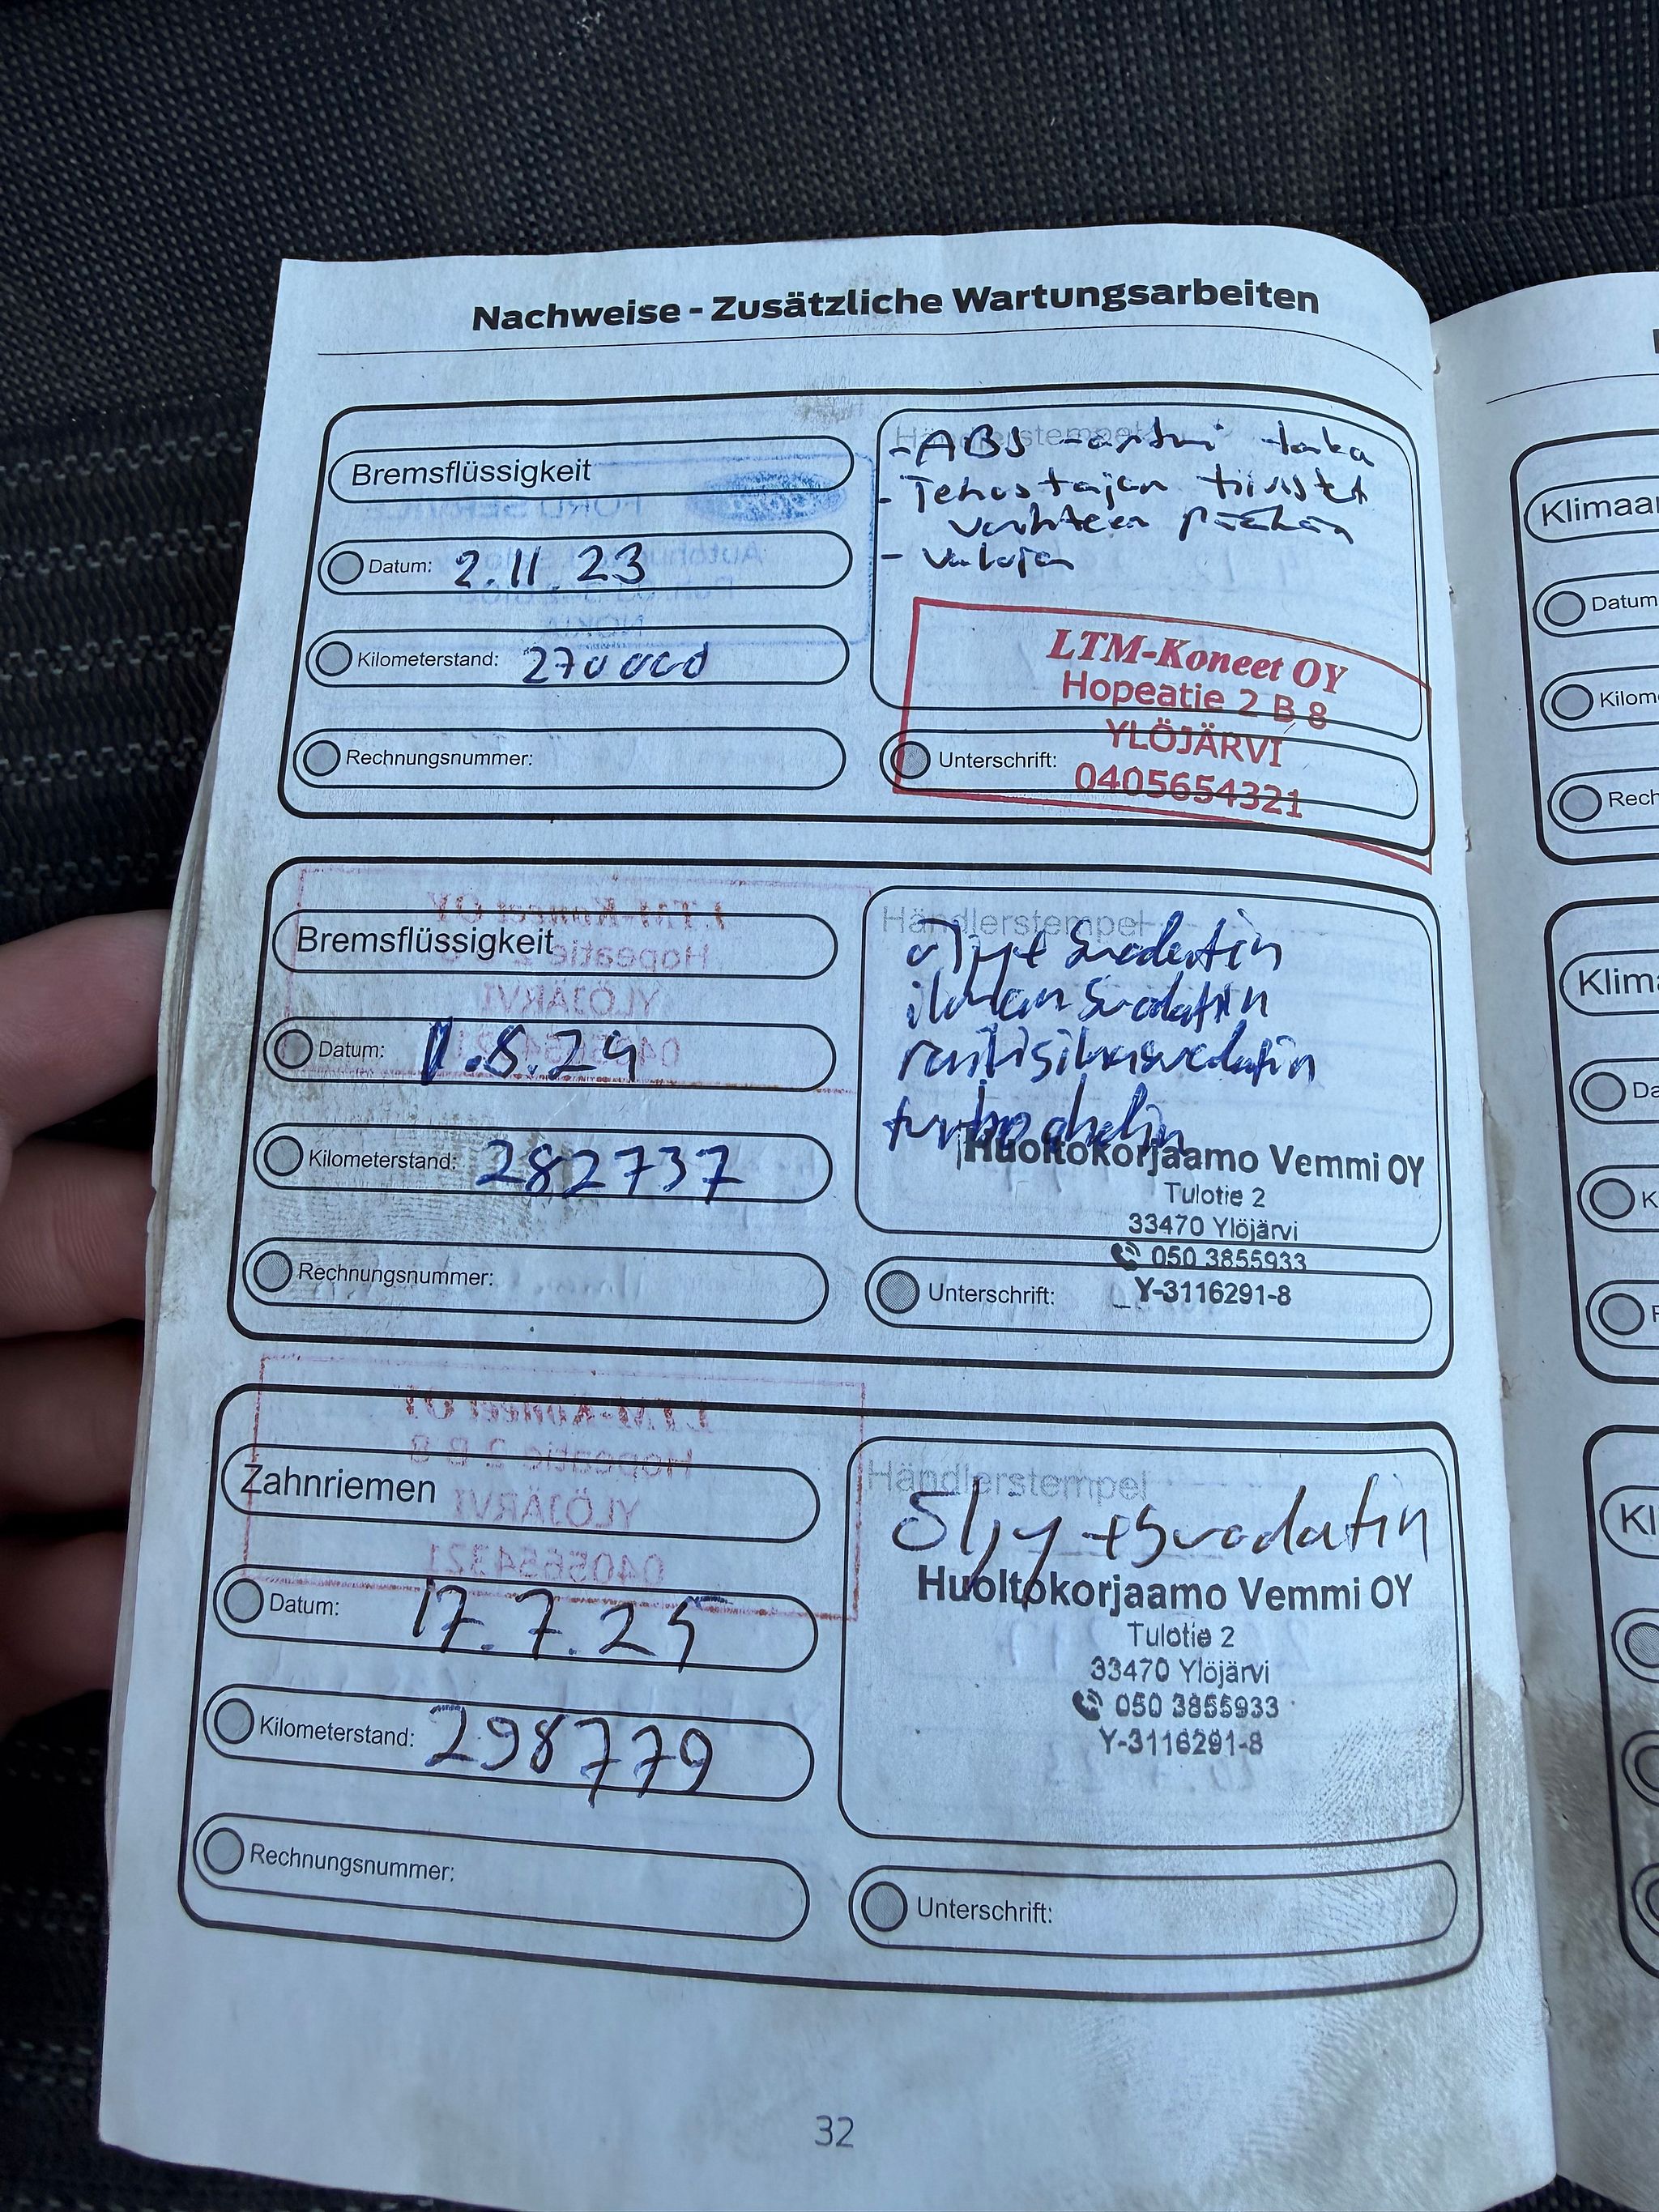 Nachweise - Zusätzliche Wartungsarbeiten
Bremsflüssigkeit
Datum: 2.11.23
Kilometerstand: 270000
Rechnungsnummer:
Händlerstempel
- ABS -anturi taka
- Tehostajan tiivisteet
vaihteen päähän
- valoja
LTM-Koneet OY
Hopeatie 2 B 8
YLÖJÄRVI
0405654321
Unterschrift:
Bremsflüssigkeit
Datum: 1.8.24
Kilometerstand: 282737
Rechnungsnummer:
Händlerstempel
öljyt Suodatin
ilman Suodatin
raitisilmasuodatin
Huoltokorjaamo Vemmi OY
Tulotie 2
33470 Ylöjärvi
050 3855933
Y-3116291-8
Unterschrift:
Zahnriemen
Datum: 17.7.25
Kilometerstand: 298779
Rechnungsnummer:
Händlerstempel
Öljy +Suodatin
Huoltokorjaamo Vemmi OY
Tulotie 2
33470 Ylöjärvi
050 3855933
Y-3116291-8
Unterschrift:
32
Datum